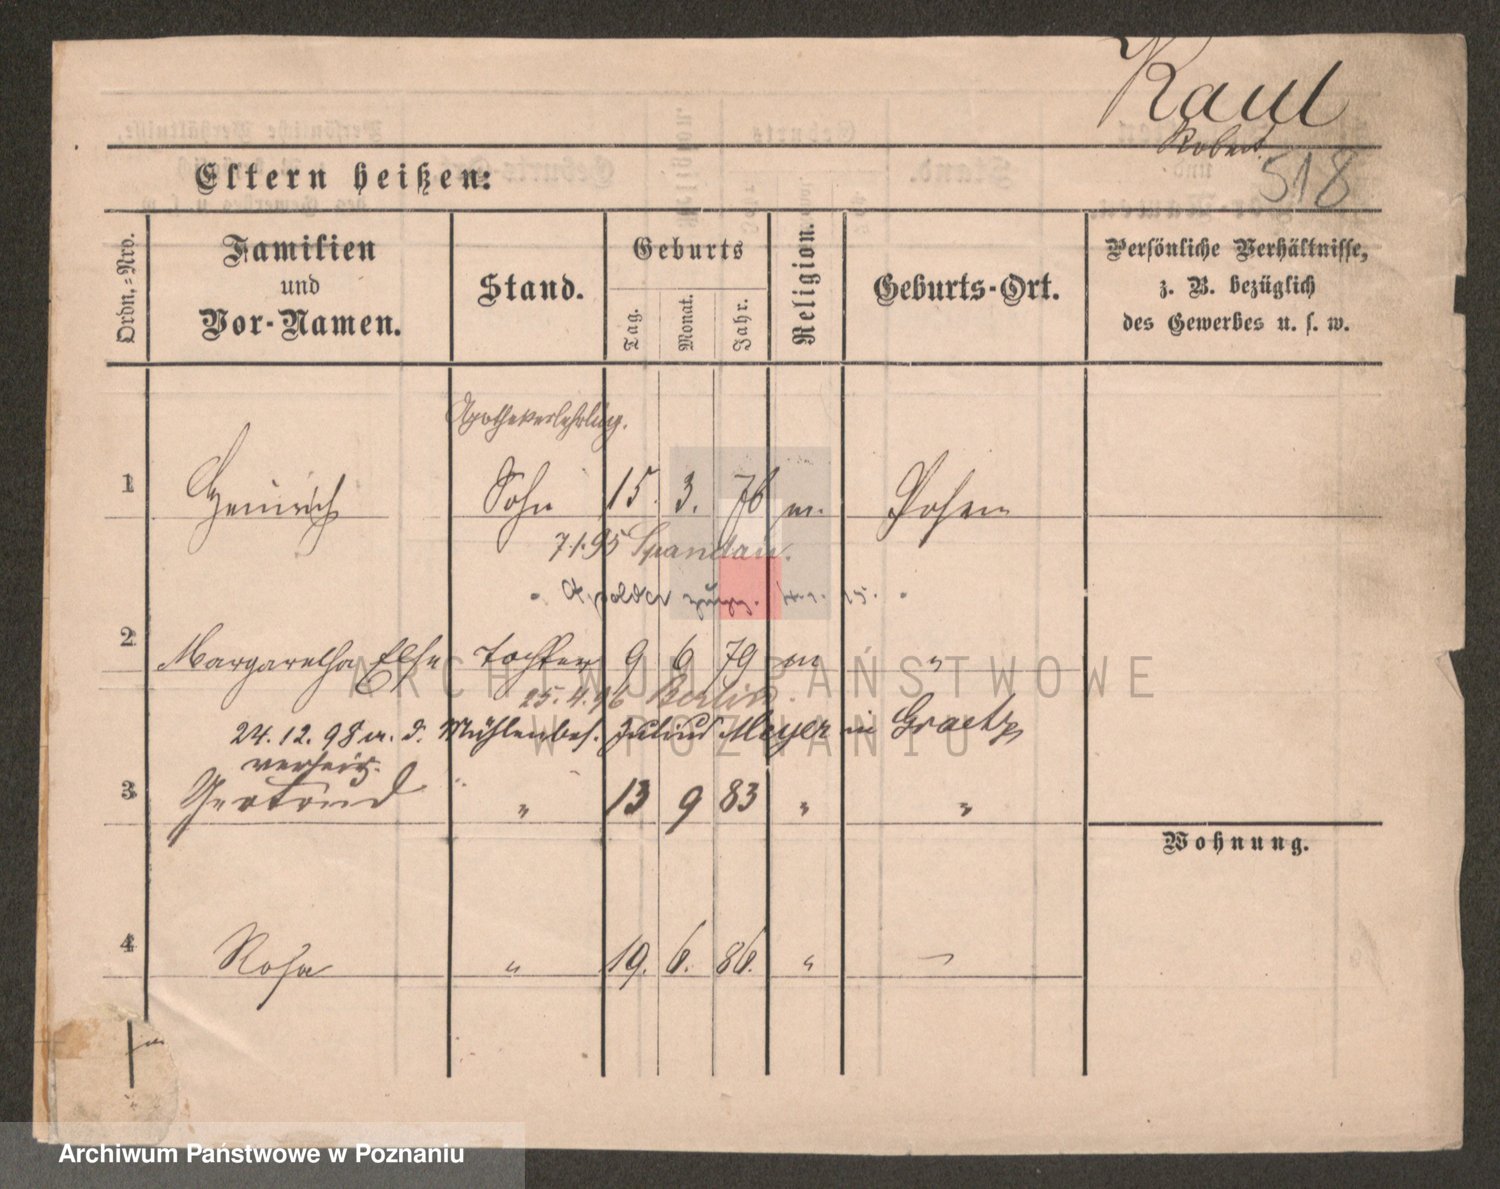 Kaul
Robert
518
Eltern heißen:
Ordn.-Nro.
Familien
und
Vor-Namen.
Stand.
Geburts
Tag.
Monat.
Jahr.
Religion.
Geburts-Ort.
Persönliche Verhältnisse,
z. B. bezüglich
des Gewerbes u. s. w.
Apothekerlehrling.
1 Heinrich Sohn 15. 3. 76 m. Posen
7.1.95 Spandau.
2 Margaretha Else Tochter 9 6 79 m "
25.4.96 Berlin
24.12.98 m. d. Mühlenbes. Julius Meyer in Graetz
verheir.
3 Gertrud " 13 9 83 " "
Wohnung.
4 Rosa " 19. 6. 86. " —
ARCHIWUM PAŃSTWOWE
W POZNANIU
Archiwum Państwowe w Poznaniu